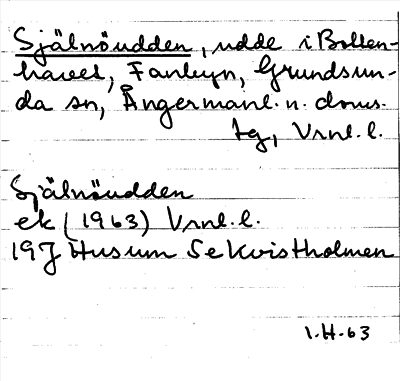 Själnöudden, udde i Botten-
havet, Fanbyn, Grundsun-
da sn, Ångermanl. n. doms.
tg, Vrnl. l.
Själnöudden
ek (1963) Vrnl. l.
19J Husum Se Kvistholmen
1.H.63